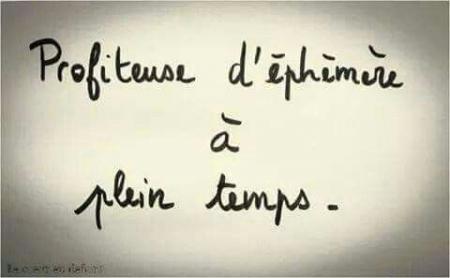 Profiteuse d'éphémère
à
plein temps.